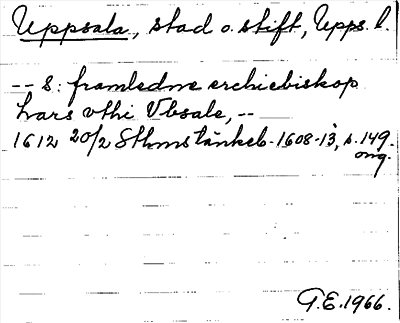 Uppsala, stad o. stift, Upps. l.
-- S: framledne erchiebiskop
Lars vthi Vbsale, --
1612 20/2 Sthmstänkeb. 1608-13, s. 149.
orig.
G.E. 1966.